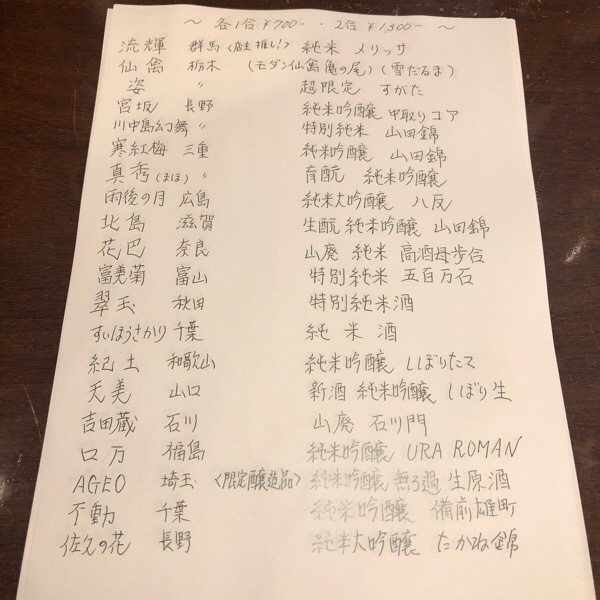 ～ 各1合 ¥700- ・ 2合 ¥1,300- ～
流輝 群馬 〈店主推し!〉 純米 メリッサ
仙禽 栃木 (モダン仙禽 亀の尾) (雪だるま)
姿 〃 超限定 すがた
宮坂 長野 純米吟醸 中取りコア
川中島幻舞 〃 特別純米 山田錦
寒紅梅 三重 純米吟醸 山田錦
真秀(まほ) 〃 育酛 純米吟醸
雨後の月 広島 純米大吟醸 八反
北島 滋賀 生酛 純米吟醸 山田錦
花巴 奈良 山廃 純米 高酒母歩合
富美菊 富山 特別純米 五百万石
翠玉 秋田 特別純米酒
すいほうさかり 千葉 純米酒
紀土 和歌山 純米吟醸 しぼりたて
天美 山口 新酒 純米吟醸 しぼり生
吉田蔵 石川 山廃 石川門
口万 福島 純米吟醸 URA ROMAN
AGEO 埼玉 〈限定醸造品〉 純米吟醸 無ろ過 生原酒
不動 千葉 純米吟醸 備前雄町
佐久の花 長野 純米大吟醸 たかね錦